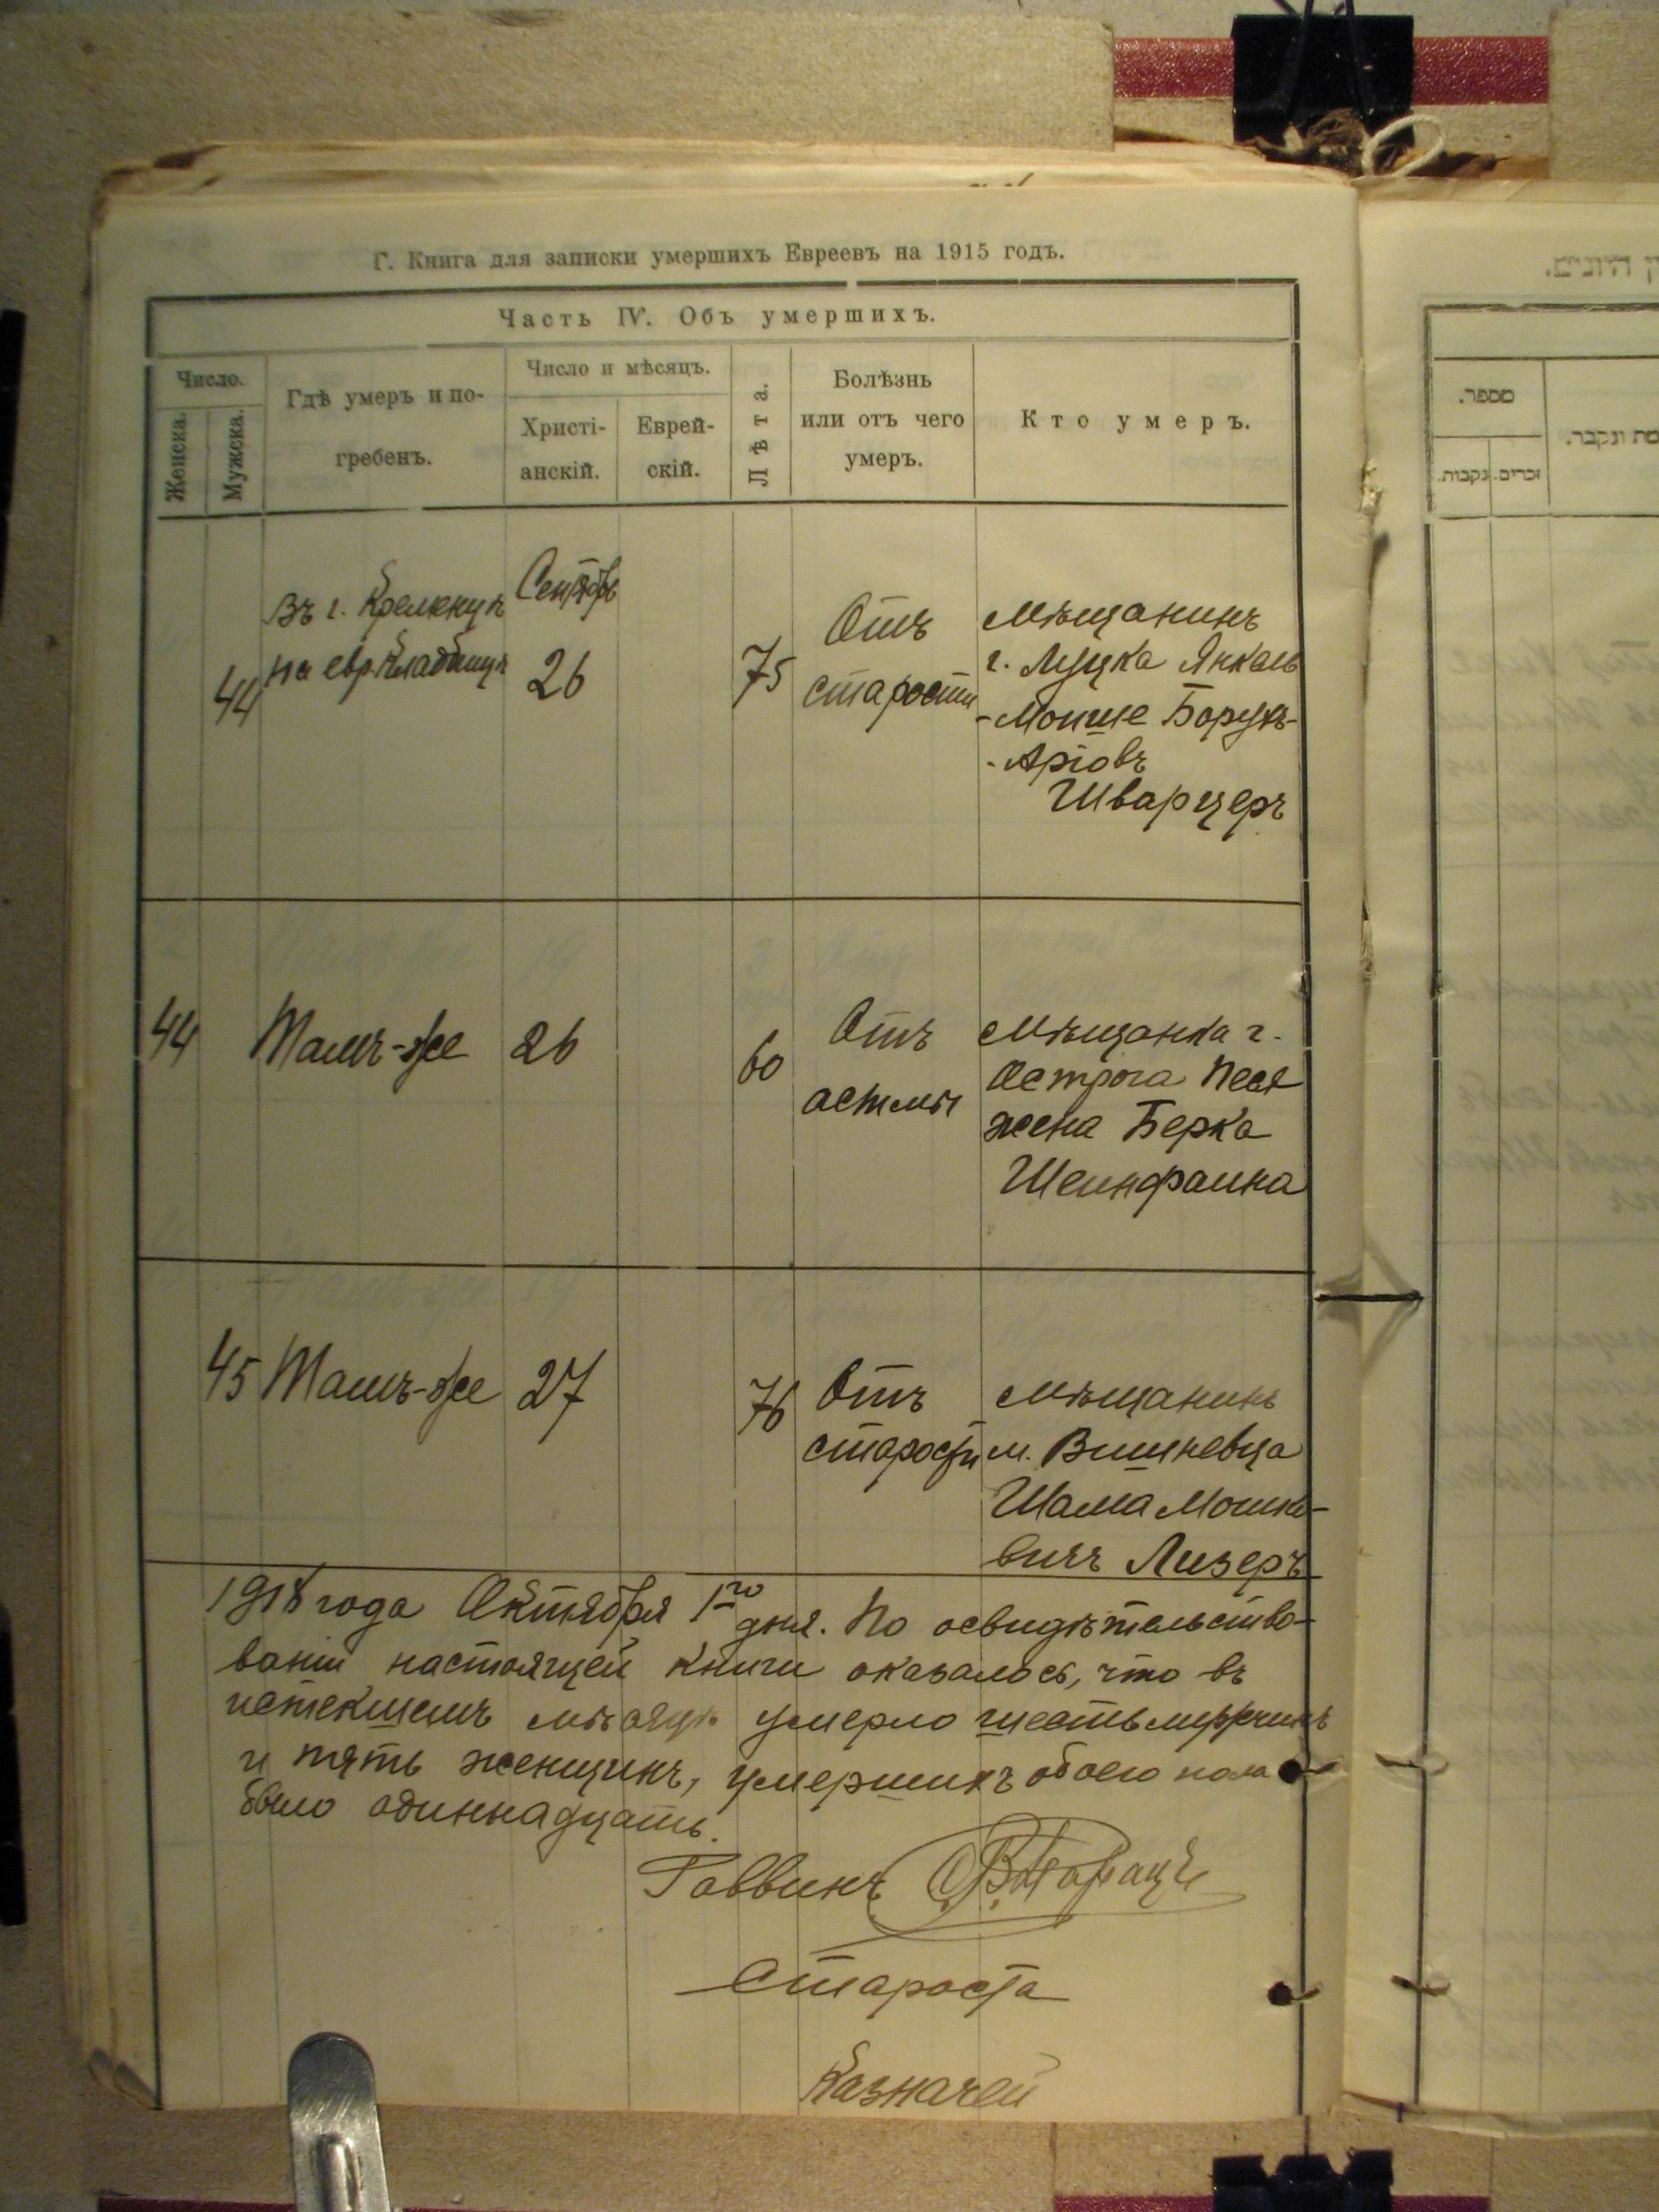 Г. Книга для записки умершихъ Евреевъ на 1915 годъ.
Часть IV. Объ умершихъ.
Число.
Женска.
Мужска.
Гдѣ умеръ и по-
гребенъ.
Число и мѣсяцъ.
Христі-
анскій.
Еврей-
скій.
Лѣта.
Болѣзнь
или отъ чего
умеръ.
Кто умеръ.
44
Въ г. Кременцѣ
на евр. кладбищѣ
Сентябрь
26
75
Отъ
старости
Мѣщанинъ
г. Луцка Янкель
-Мошше Борухъ-
-Аріовъ
Шварцеръ
44
Тамъ-же
26
60
Отъ
астмы
Мѣщанка г.
Острога Песя
жена Берка
Шеинфаина
45
Тамъ-же
27
76
Отъ
старости
Мѣщанинъ
м. Вишневца
Шама Мошко-
вичъ Лизеръ
года Октября 1го
дня. По освидѣтельство-
ваніи настоящей книги оказалось, что въ
истекшемъ мѣсяцѣ умерло шесть мужчинъ
и пять женщинъ, умершихъ обоего пола
было одиннадцать.
Раввинъ
Староста
Казначей
ן היונים.
מספר.
נקבות.
זכרים.
מת ונקבר.